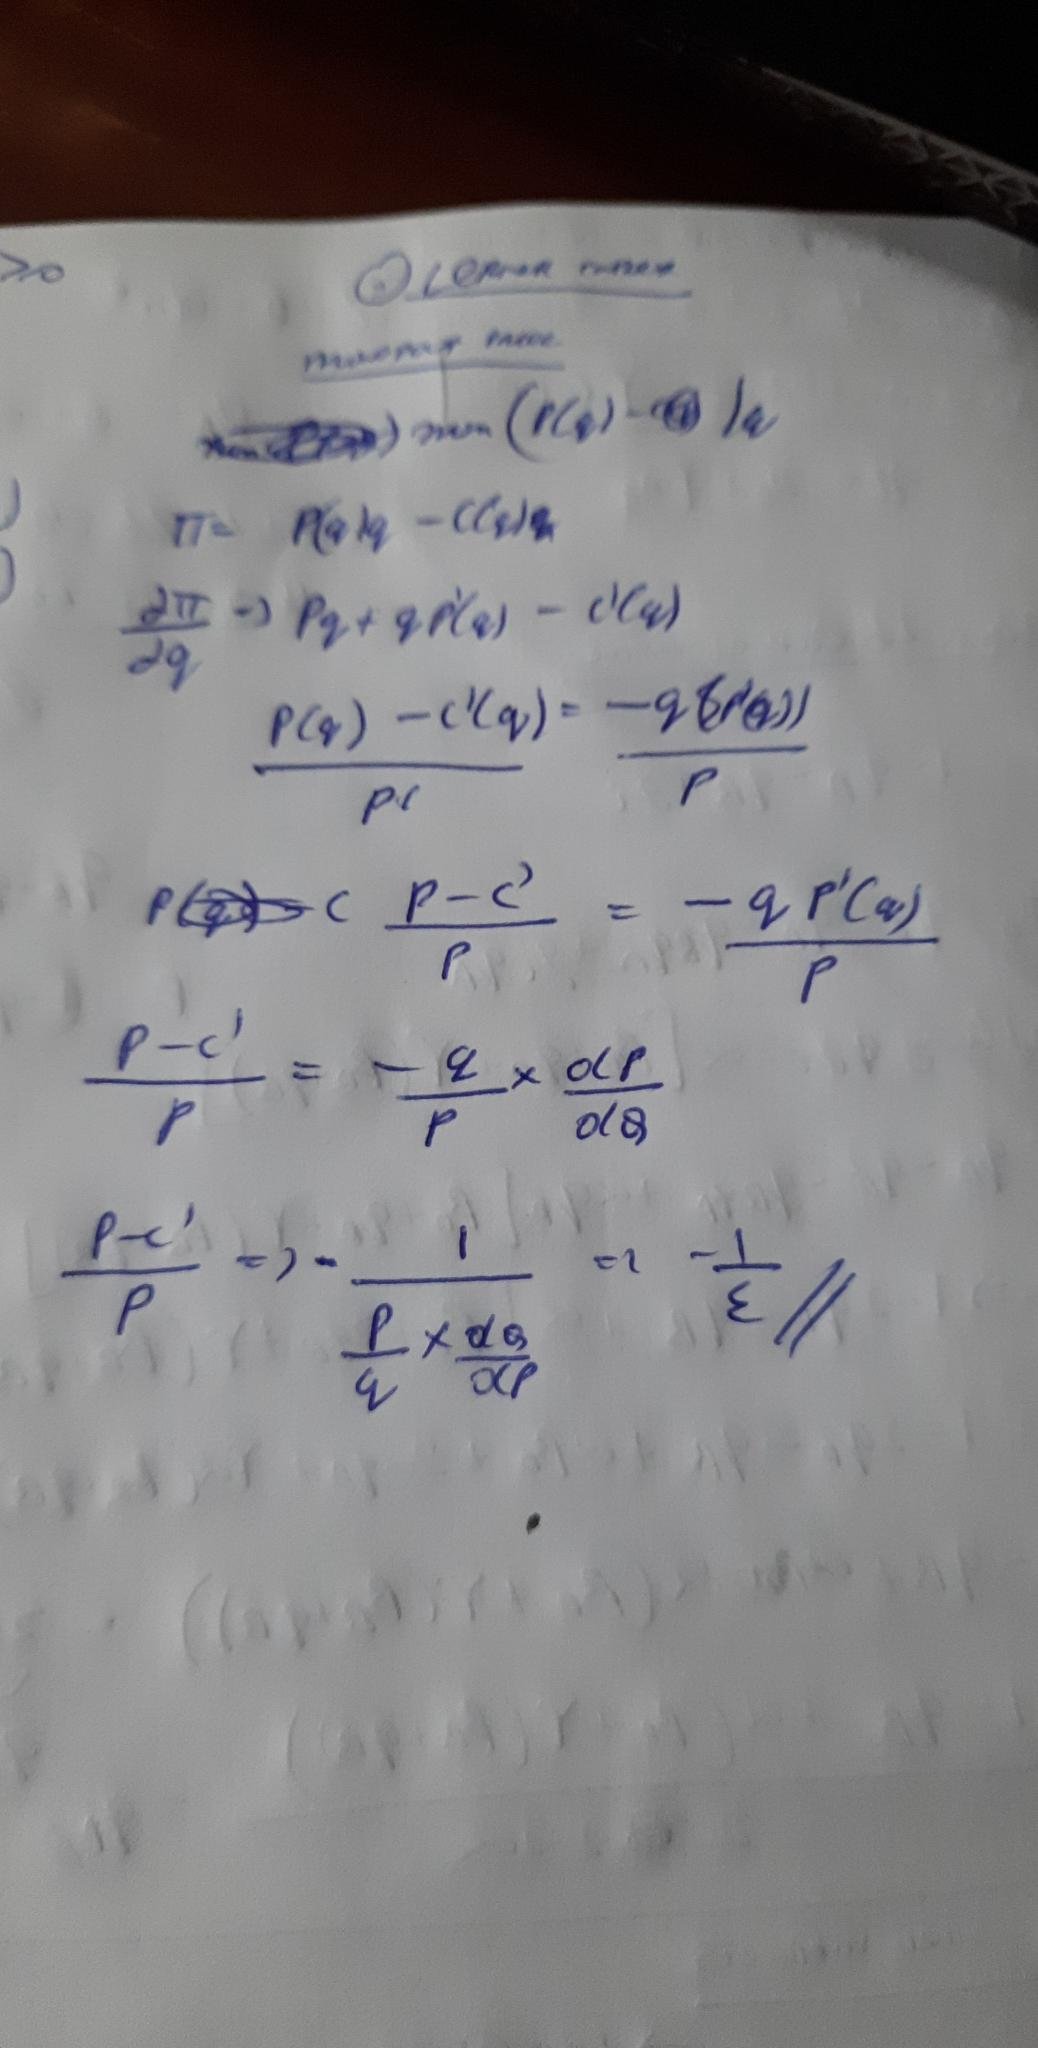 ≥0
① LERNER INDEX
monopoly price
max (P(q) - ) q
π = P(q)q - C(q)
∂π/∂q => Pq + qP'(q) - C'(q)
(P(q) - C'(q))/P = -q(P'(q))/P
P C (P-C')/P = -qP'(q)/P
(P-C')/P = -q/P × dP/dQ
(P-C')/P => - 1/(P/q × dQ/dP) => -1/ε //